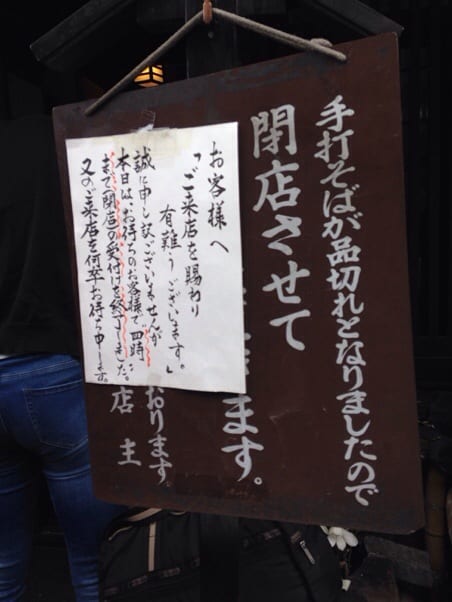 手打そばが品切れとなりましたので
閉店させて
ます。
おります
店主
お客様へ
「ご来店を賜わり
有難うございます。」
誠に申し訳ございませんが
本日は、お待ちのお客様で〝四時〟
まで(閉店)の受付けを終了しました。
又のご来店を何卒お待ち申します。